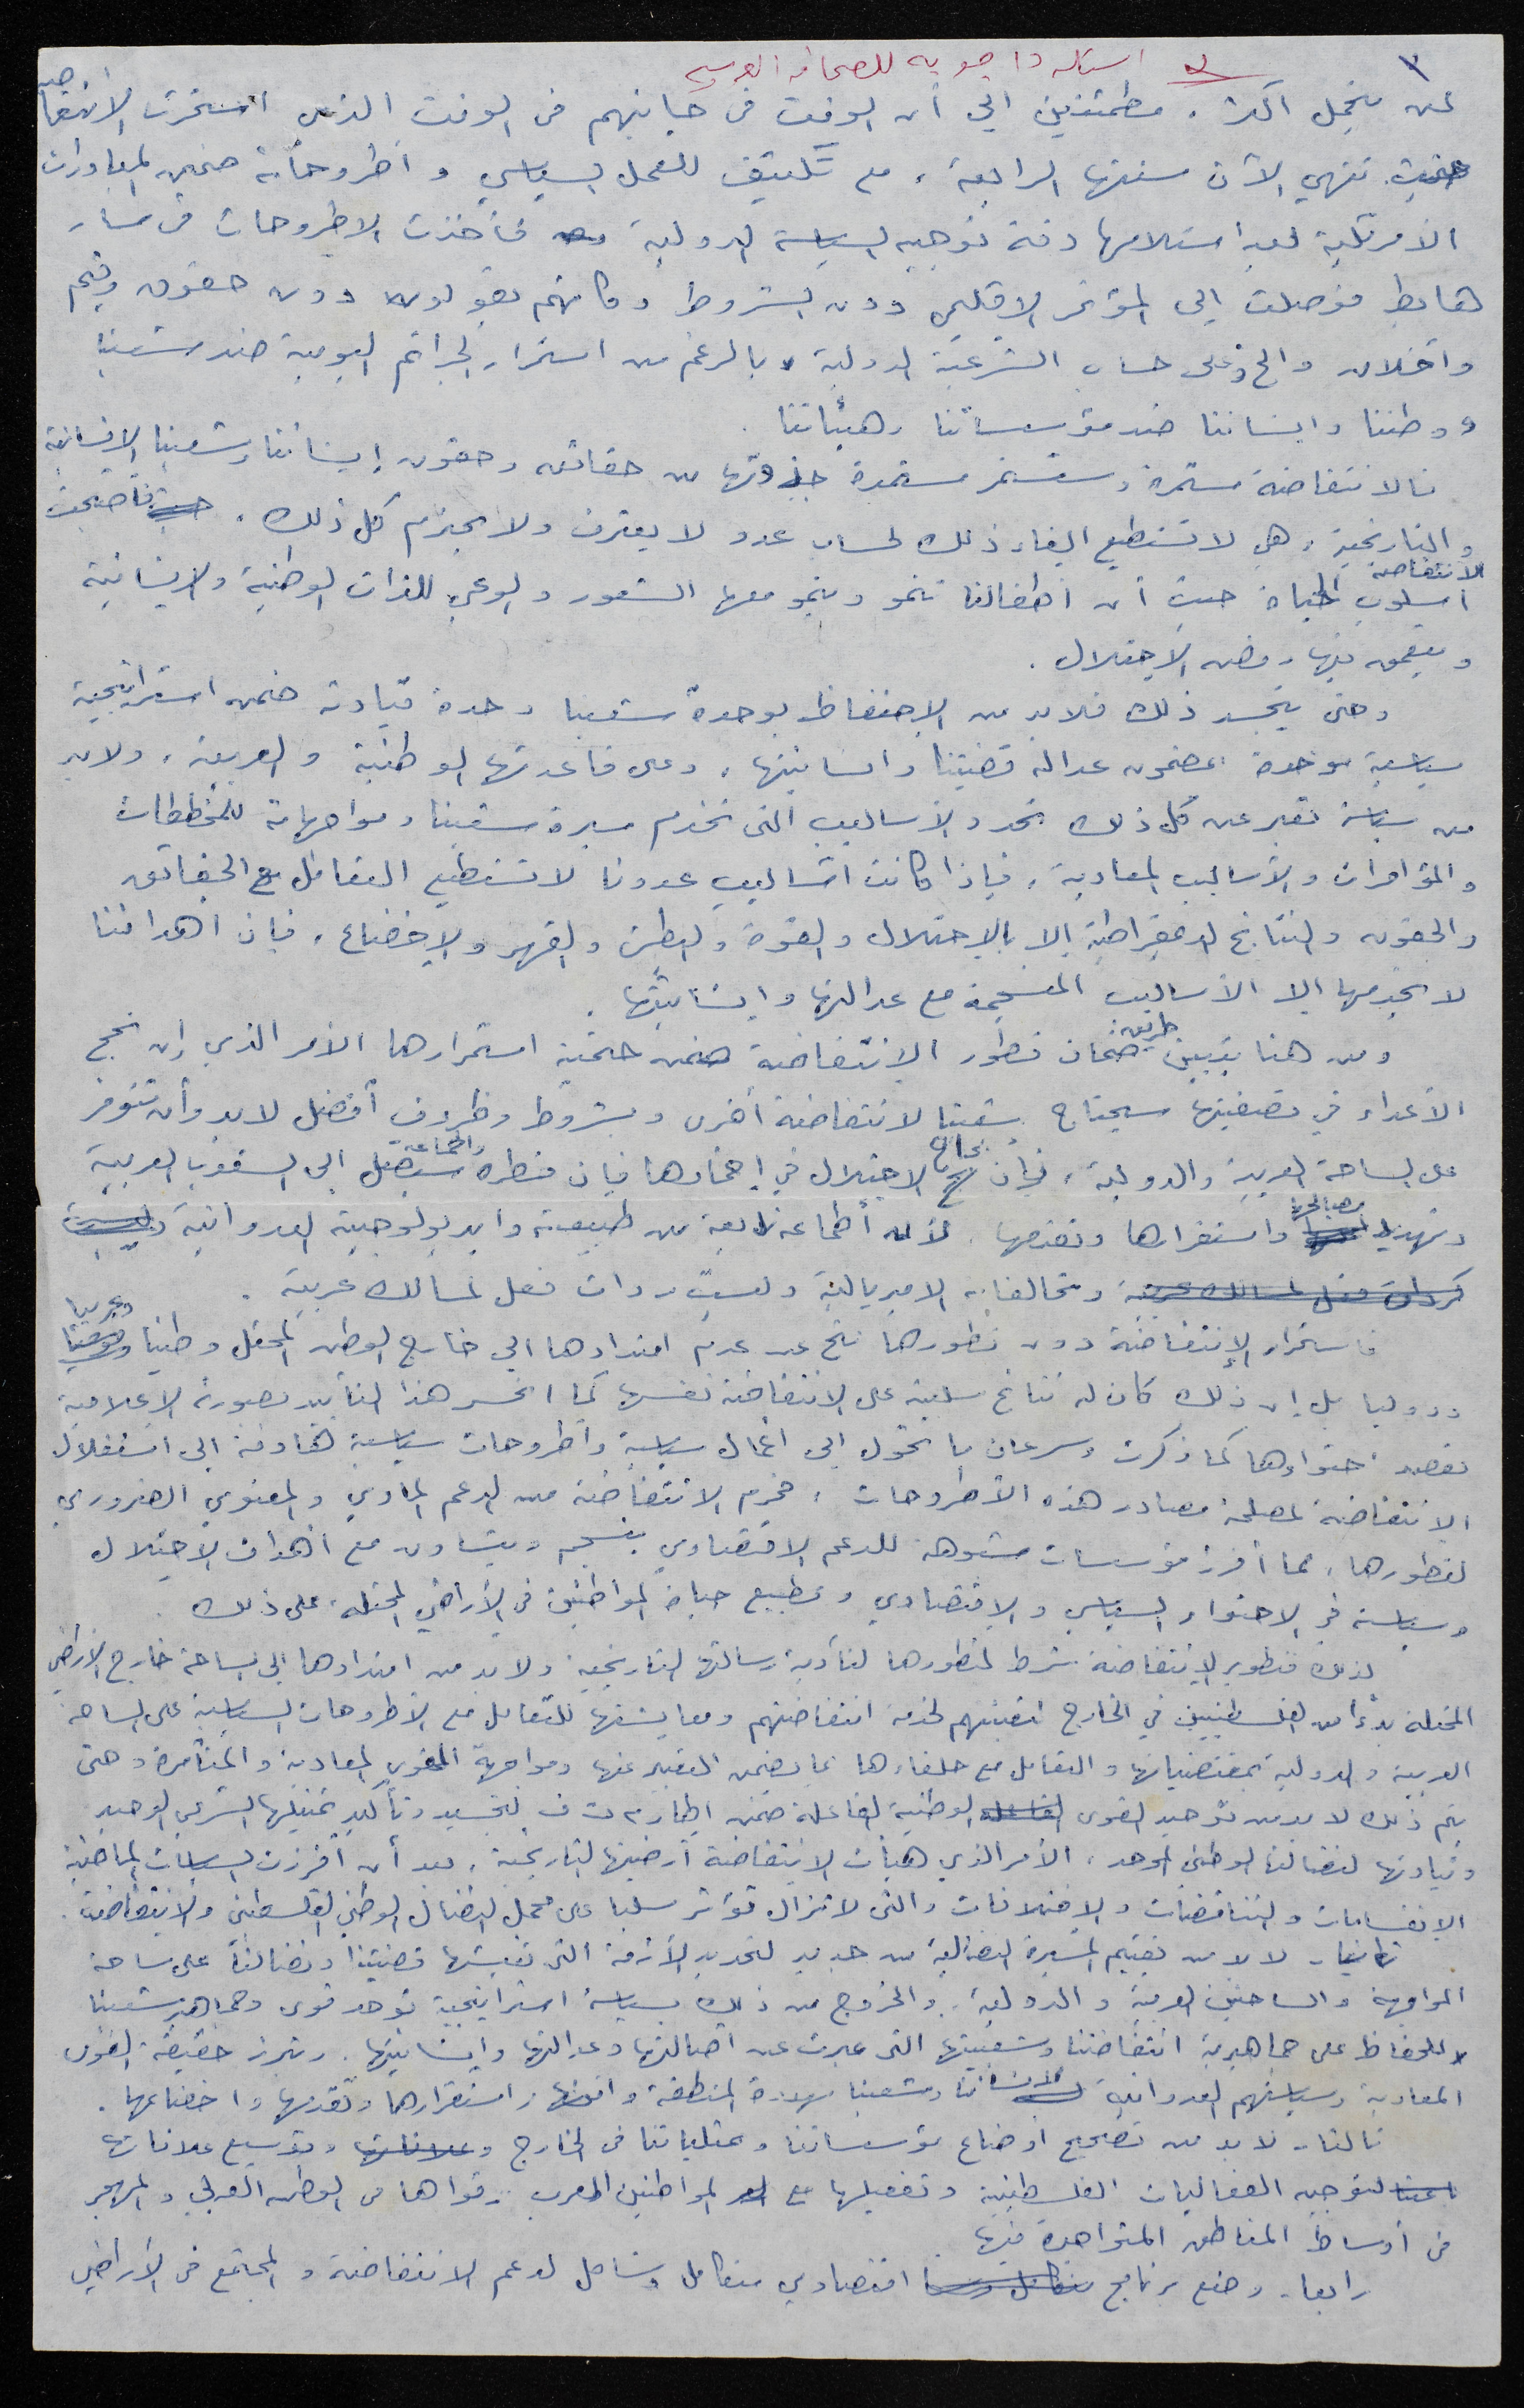 ٣
اسئله واجوبه للصحافه العربيه
عن تحمل اكثر، مطمئنين الى أن الوقت في جانبهم في الوقت الذي استمرت الانتفاضه
حيث تنهي الآن سنتها الرابعة، مع تكثيف للعمل السياسي و أطروحاته ضمن المبادرات
الأمريكية بعد استلامها دفة توجيه السياسة الدولية فأخذت الاطروحات في مسار
هابط فوصلت إلى المؤتمر الاقليمي دون الشروط وكأنهم يقولون دون حقوق وقيم
وأخلاق والخ وعلى حساب الشرعية الدولية، بالرغم من استمرار الجرائم اليومية ضد شعبنا
ووطننا وانساننا ضد مؤسساتنا وهيئاتنا.
فالانتفاضة مستمرة وستستمر مستمدة جذوتها من حقائق وحقوق إنساننا وشعبنا الإنسانية
والتاريخية، وهي لا تستطيع الغاء ذلك لحساب عدو لا يعترف ولا يحترم كل ذلك. فأصبحت
الانتفاضة أسلوب الحياة حيث أن أطفالنا تنمو وينمو معها الشعور والوعي للذات الوطنية والإنسانية
ويتعمق فيها رفض الاحتلال.
وحتى يتجسد ذلك فلا بد من الإحتفاظ بوحدة شعبنا وحدة قيادته ضمن استراتيجية
سياسية موحدة بمضمون عدالة قضيتنا وانسانيتها، وعلى قاعدتها الوطنية والعربية، ولا بد
من سياسة تعبر عن كل ذلك تحدد الأساليب التي تخدم مسيرة شعبنا ومواجهاته للمخططات
والمؤامرات والأساليب المعادية، فإذا كانت أساليب عدونا لا تستطيع التعامل مع الحقائق
والحقوق والنتائج الديمقراطية إلا بالاحتلال والقوة والبطش والقهر والإخضاع، فإن أهدافنا
لا يخدمها إلا الأساليب المنسجمة مع عدالتها وإنسانيتها.
ومن هنا يتبين طريق ضمان تطور الإنتفاضة ضمن حتمية استمرارها الأمر الذي إن نجح
الأعداء في تصفيتها سيحتاج شعبنا لانتفاضة أخرى وبشروط وظروف أفضل لا بد وأن تتوفر
على الساحة العربية والدولية، فإن نجاح الاحتلال في إخمادها فإن خطره وأطماعه ستصل إلى الشعوب العربية
وتهديد مصالحها واستقرارها وتقدمها، لأن أطماعه نابعة من طبيعته وايديولوجيته العدوانية
وتحالفاته الامبريالية وليست ردات فعل لمسالك عربية.
فاستمرار الإنتفاضة دون تطورها نتج عن عدم امتدادها الى خارج الوطن المحتل وطنيا وعربيا
ودوليا بل إن ذلك كان له نتائج سلبية على الانتفاضة نفسها كما انحسر هذا التأييد بصورته الإعلامية
بقصد احتواءها كما ذكرت وسرعان ما تحول الى أعمال سياسية وأطروحات سياسية هادفة إلى استغلال
الانتفاضة لمصلحة مصادر هذه الأطروحات، فحرم الانتفاضة من الدعم المادي والمعنوي الضروري
لتطورها، مما أفرز مؤسسات مشوهة للدعم الاقتصادي ينسجم ويتساوق مع أهداف الإحتلال
وسياسته في الاحتواء السياسي والاقتصادي وتطبيع حياة المواطنين في الأراضي المحتلة، على ذلك
لذلك فتطوير الإنتفاضة شرط لتطورها لتأدية رسالتها التاريخية ولا بد من امتدادها إلى الساحة خارج الأراضي
المحتلة بدءاً من الفلسطينيين في الخارج لتعبئتهم لخدمة انتفاضتهم ومعايشتها للتعامل مع الأطروحات السياسية على الساحة
العربية والدولية بمقتضياتها والتعامل مع حلفاءها بما يضمن التعبير عنها ومواجهة القوى المعادية والمتآمرة وحتى
يتم ذلك لا بد من توحيد القوى الوطنية الفاعلة ضمن اطار م ت ف لتجسيد وتأكيد تمثيلها الشرعي الوحيد
وقيادتها لنضالنا الوطني الموحد، الأمر الذي هيأت الإنتفاضة أرضيتها التاريخية، بعد أن أفرزت السياسات الماضية
الانقسامات والتناقضات والاختلافات والتي لا تزال تؤثر سلبا على مجمل النضال الوطني الفلسطيني والانتفاضة.
ثانيا- لا بد من تقييم المسيرة النضالية من جديد لتحديد الأزمة التي تعيشها قضيتنا ونضالنا على ساحة
المواجهة والساحتين العربية والدولية، والخروج من ذلك بسياسة استراتيجية توحد قوى وجماهير شعبنا
للحفاظ على جماهيرية انتفاضتنا وشعبيتها التي عبرت عن أصالتها وعدالتها وإنسانيتها. وتبرز حقيقة القوى
المعادية وسياستهم العدوانية لإنساننا وشعبنا مهددة المنطقة وأمنها واستقرارها وتقدمها واخضاعها.
ثالثا- لا بد من تصحيح أوضاع مؤسساتنا وممثلياتنا في الخارج وتوسيع علاقاتها
لتوجيه الفعاليات الفلسطينية وتفعيلها مع المواطنين العرب وقواها في الوطن العربي والمهجر
في أوساط المناطق المتواجدة فيها
رابعا- وضع برنامج اقتصادي متكامل وشامل لدعم الانتفاضة والمجتمع في الأراضي